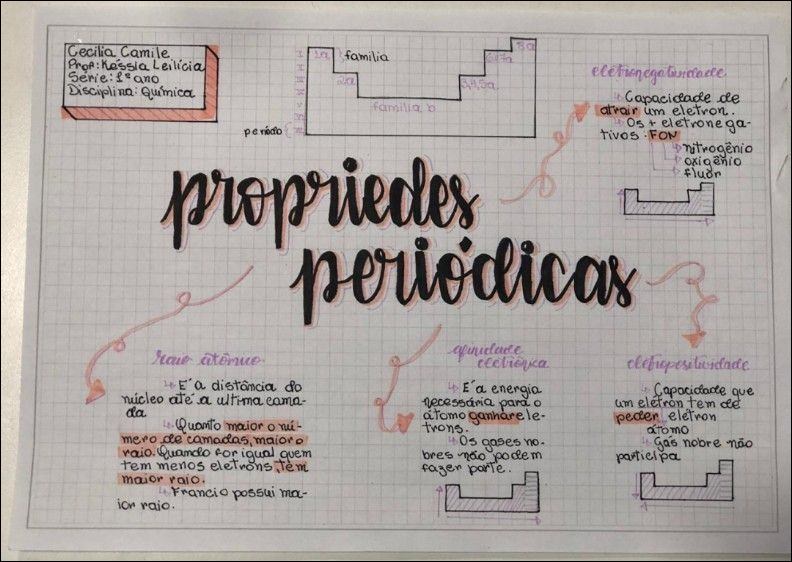 Cecilia Camile
Prof: Kássia Leilícia
Série: 1º ano
Disciplina: Química
1a
família
2a
família b
3,4,5a
6,7a
8a
período
propriedes
periódicas
eletronegatividade
Capacidade de
atrair um eletron.
Os + eletronega-
tivos: FON
nitrogênio
oxigênio
fluor
raio atômico
E' a distância do
núcleo até a ultima cama-
da
Quanto maior o nú-
mero de camadas, maior o
raio. Quando for igual quem
tem menos eletrons, tem
maior raio.
Francio possui ma-
ior raio.
afinidade
eletrônica
E' a energia
necessária para o
átomo ganhar ele-
trons.
Os gases no-
bres não podem
fazer parte.
eletropositividade
Capacidade que
um eletron tem de
peder eletron
átomo
Gás nobre não
participa